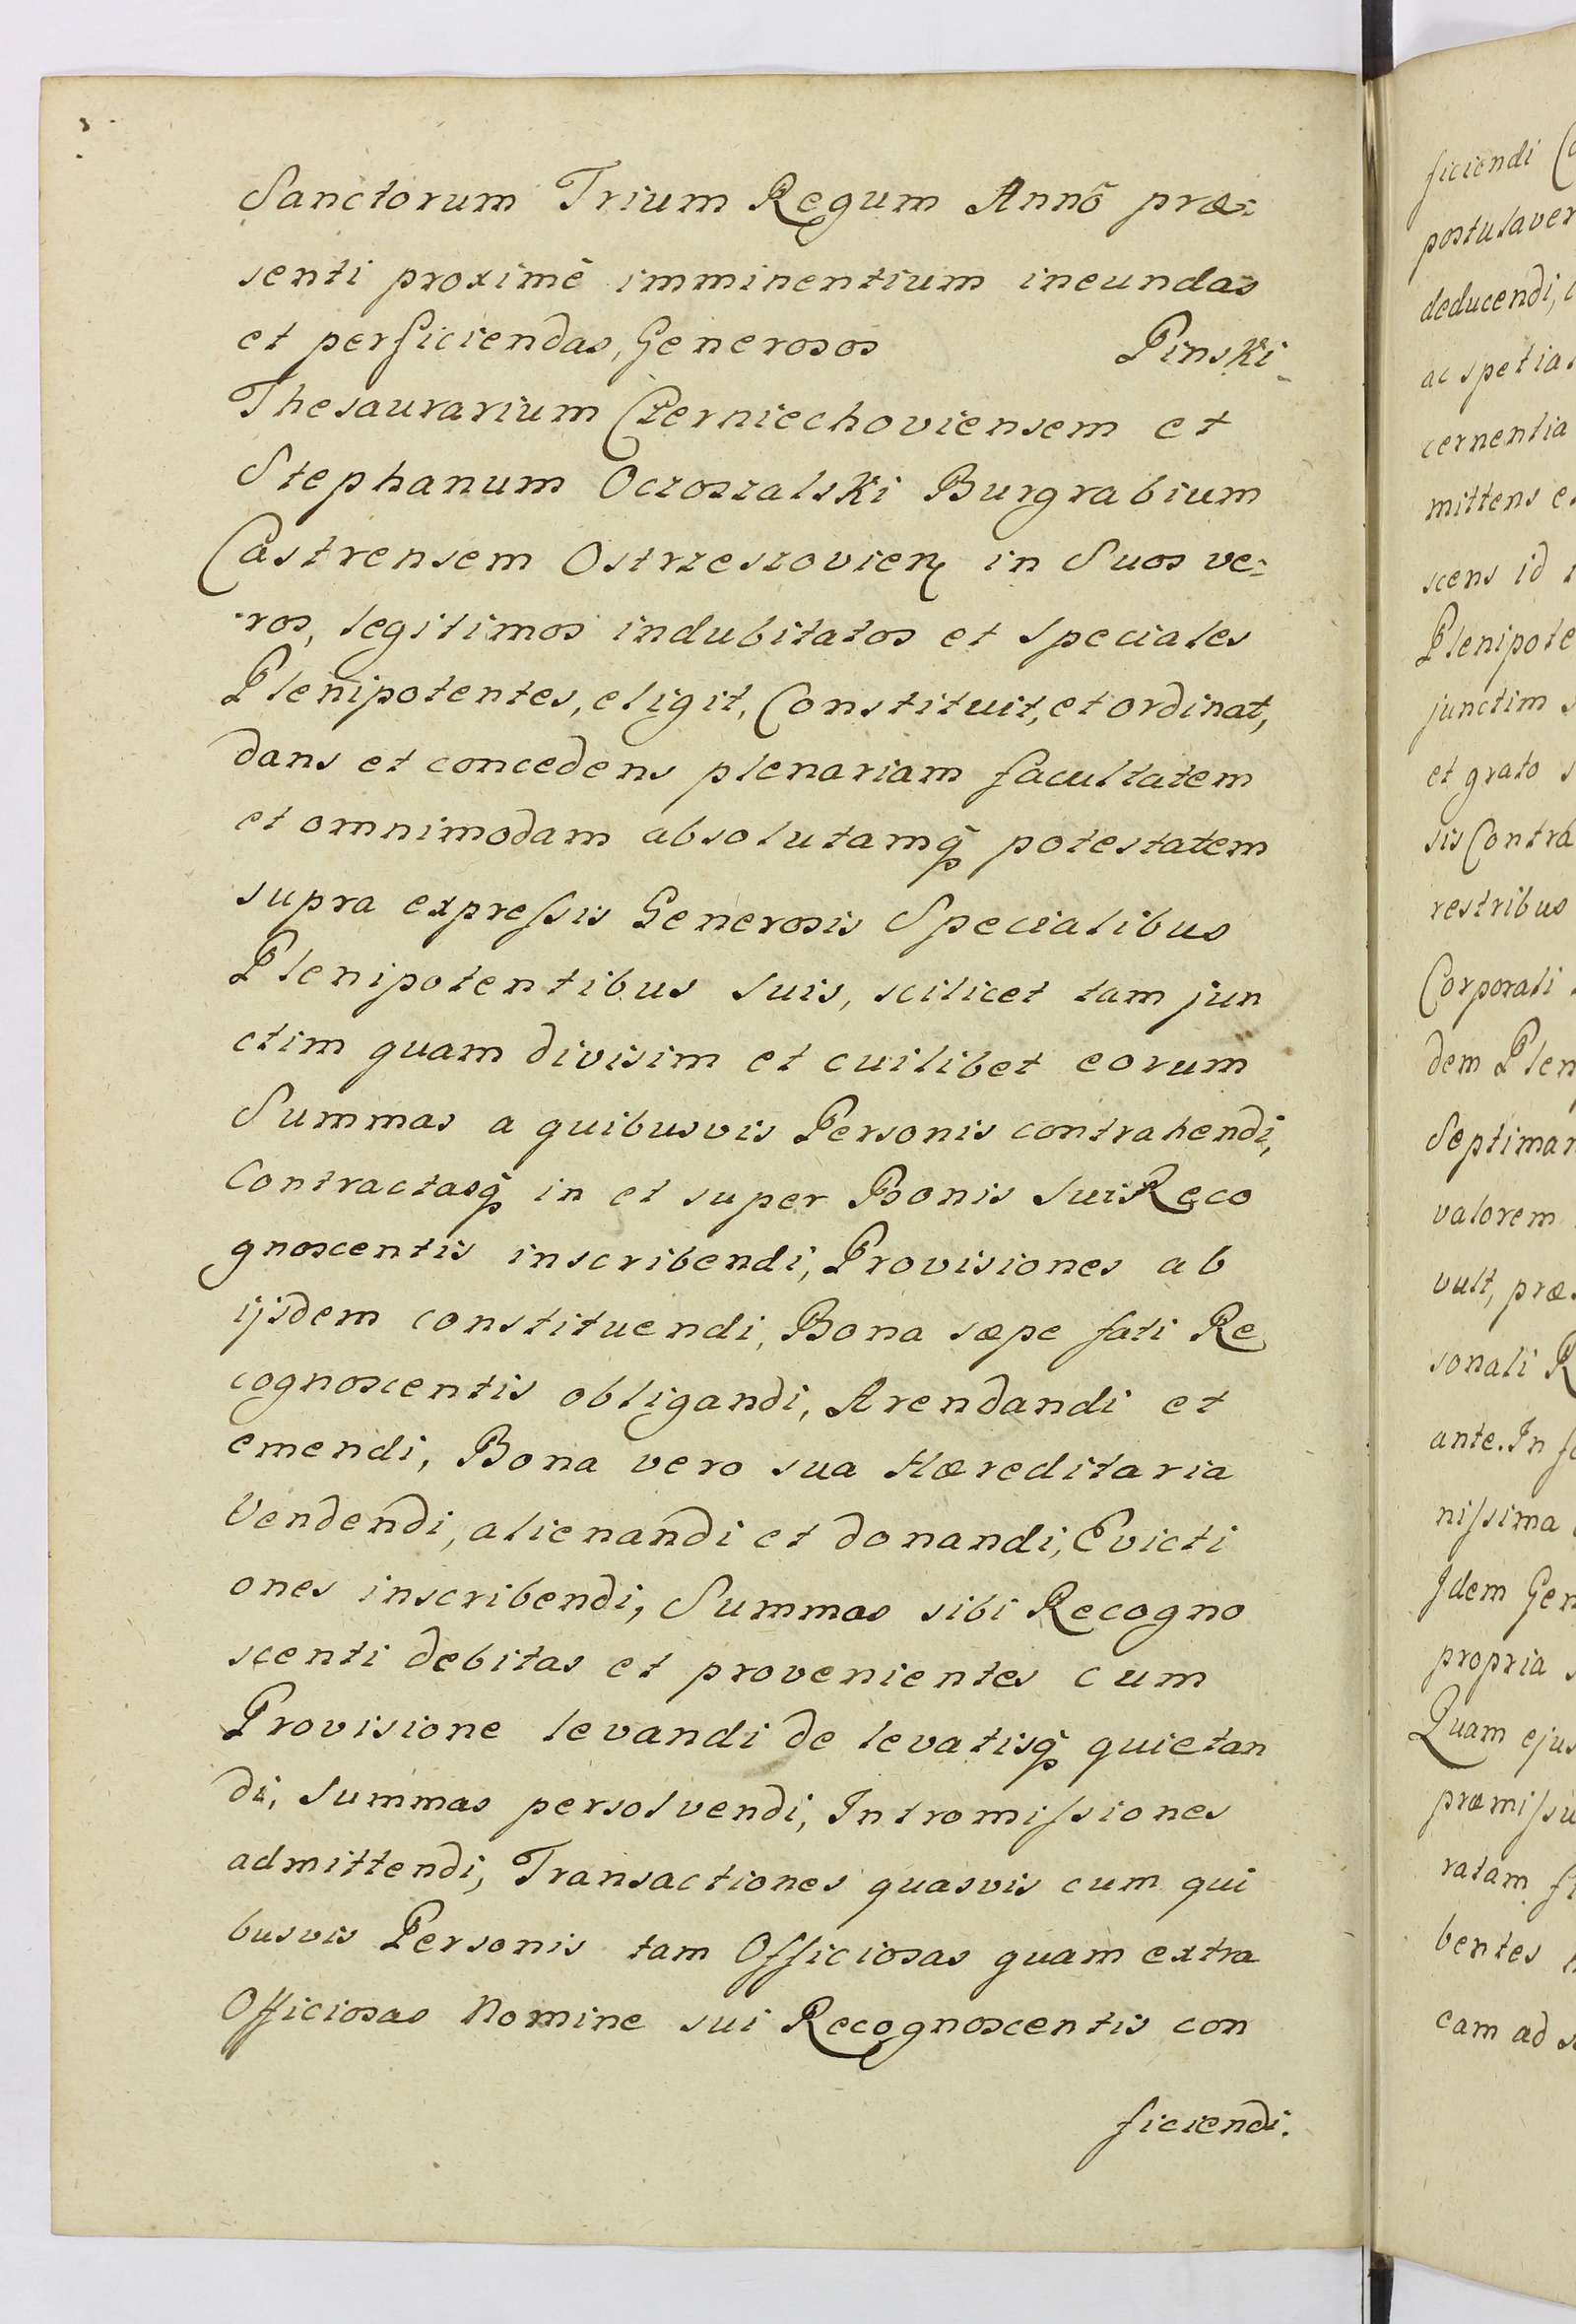 Sanctorum Trium Regum Annõ præ:
senti proximê imminentium ineundas
et perficiendas, Generosos Pinski
Thesaurarium Czerniechoviensem et
Stephanum Oczoszalski Burgrabium
Castrensem Ostrzeszovien in Suos ve:
ros, legitimos indubitatos et speciales
Plenipotentes, eligit, Constituit, et ordinat,
dans et concedens plenariam facultatem
et omnimodam absolutamq̃ potestatem
supra expreſsis Generosis Specialibus
Plenipotentibus suis, scilicet tam jun
ctim quam divisim et cuilibet eorum
Summas a quibusvis Personis contrahendi,
Contractasq̃ in et super Bonis sui Reco
gnoscentis inscribendi, Provisiones ab
ijsdem constituendi, Bona sæpe fati Re
cognoscentis obligandi, Arendandi et
emendi, Bona vero sua Hæreditaria
Vendendi, alienandi et donandi, Evicti
ones inscribendi, Summas sibi Recogno
scenti debitas et provenientes cum
Provisione levandi de levatisq̃ quietan
di, summas persolvendi, Intromiſsiones
admittendi, Transactiones quasvis cum qui
busvis Personis tam Officiosas quam extra
Officiosas Nomine sui Recognoscentis con
ficiendi.
ficiendi
postulaver
deducendi,
ac spetia
cernentia
mittens
scens id
Plenipote
junctim
et grato
sis Contra
restribus
Corporali
dem Plen
Septiman
valorem
vult, præ
sonali R
ante. In
niſsima
Idem Gen
propria
Quam ejus
præmiſsu
ratam
bentes
eam ad